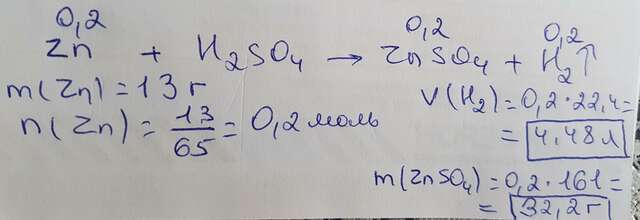 0,2 0,2 0,2
Zn + H₂SO₄ → ZnSO₄ + H₂↑
m(Zn) = 13 г
n(Zn) = 13/65 = 0,2 моль
V(H₂) = 0,2·22,4 =
= 4,48 л
m(ZnSO₄) = 0,2·161 =
= 32,2 г